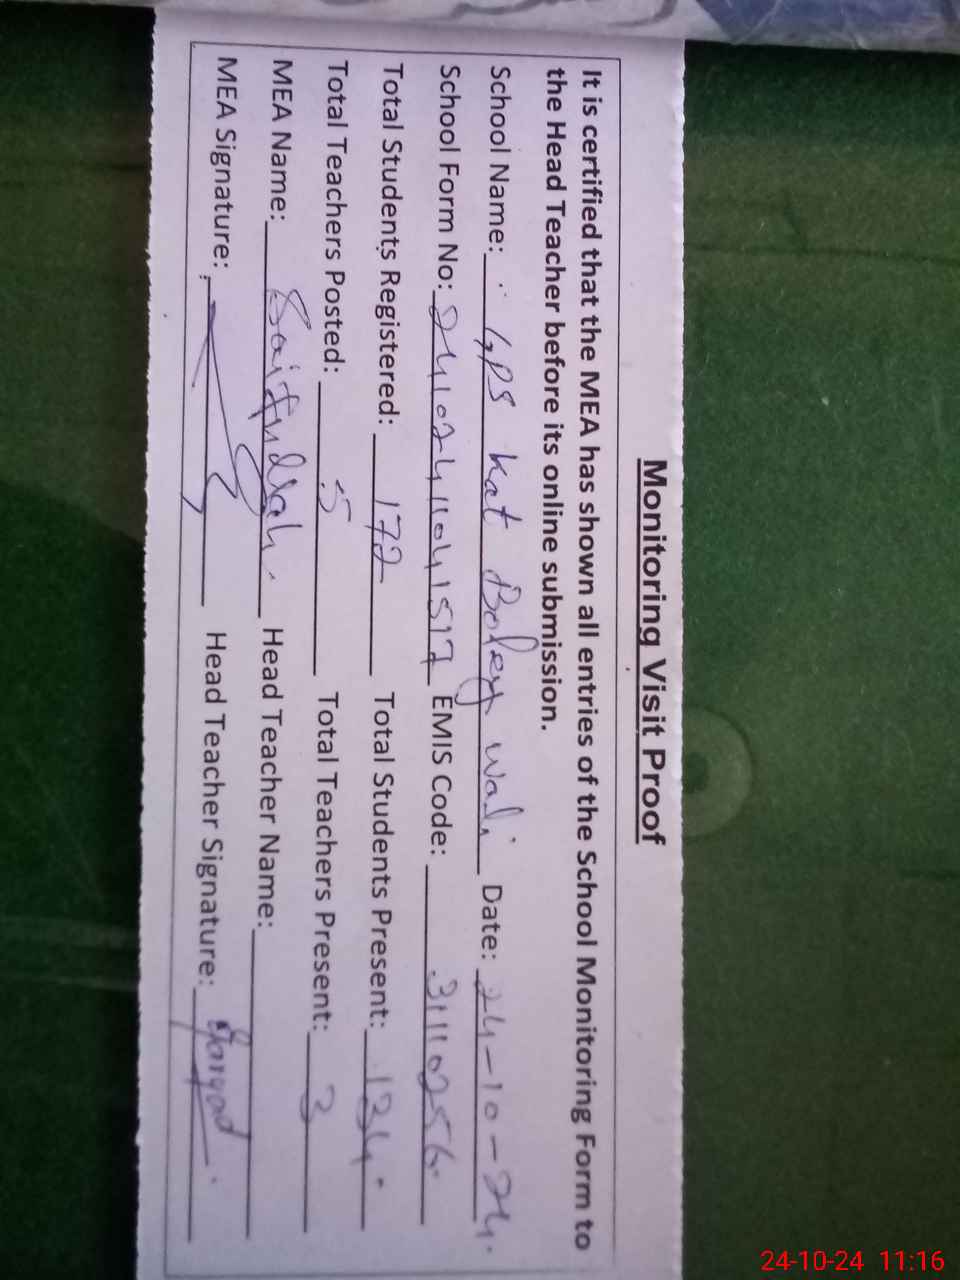 Monitoring Visit Proof
It is certified that the MEA has shown all entries of the School Monitoring Form to
the Head Teacher before its online submission.
School Name: GPS Kat Boley wali Date: 24-10-24.
School Form No: 24102411041517 EMIS Code: 31110256
Total Students Registered: 172 Total Students Present: 134
Total Teachers Posted: 5 Total Teachers Present: 3
MEA Name: Saifullah. Head Teacher Name:
MEA Signature: Head Teacher Signature:
24-10-24 11:16